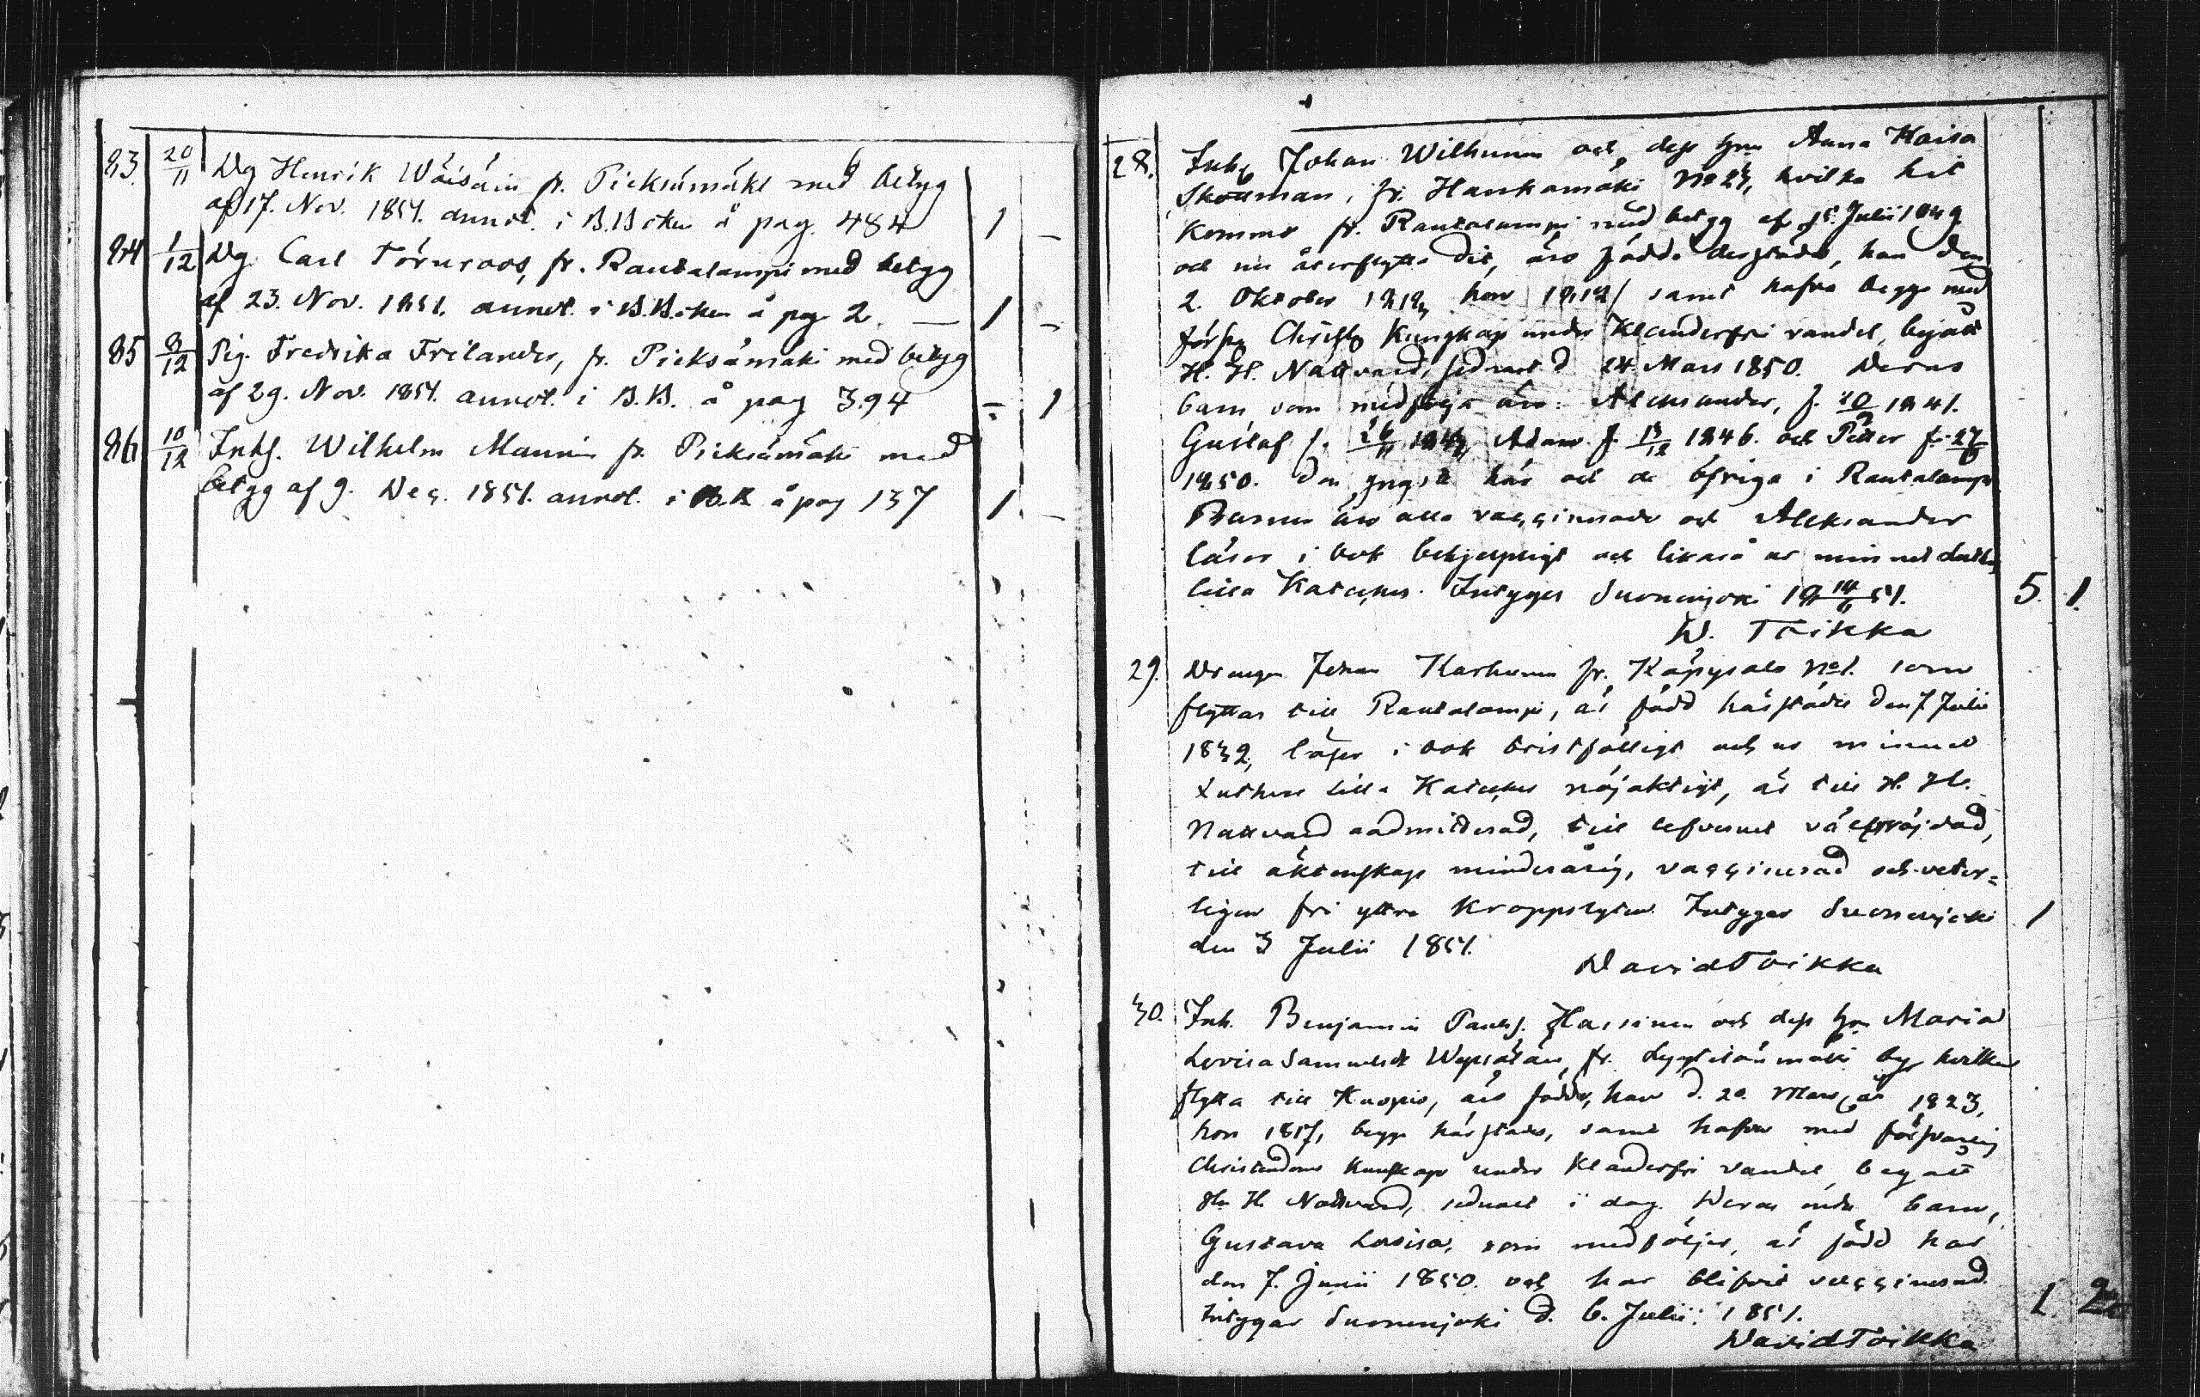 83. 20/11 Dg Henrik Wäisäin fr. Pieksämäki med betyg
af 17. Nov. 1851. annot. i B.Boken å pag. 484 1 -
84 1/12 Dg. Carl Törnroos, fr. Rautalampi med betyg
af 23. Nov. 1851. annot. i B.B.oken å pag 2. — 1 -
85 8/12 Pig. Fredrika Frilander, fr. Pieksämäki med betyg
af 29. Nov. 1851. annot. i B.B. å pag 394 - 1
86 10/12 Inhs. Wilhelm Mannin fr. Pieksämäki med
betyg af 9. Dec. 1851. annot. i B.B å pag 137 1. -
28. Inhs Johan Wilhunen och dess hru Anna Kaisa
fr. Hankamäki No hvilka hit
kommo fr. Rautalampi med betyg af Julii 1849
och nu återflytta dit, äro födda derstädes, han den
2. Oktober hon samt hafva begge med
Christd Kunskap under klanderfri vandel, begått
H. H. Nattvard, sednast d 24 Mars 1850. Deras
barn som medfölja äro: Aleksander, f. 1841.
Gustaf f. Adam f. 13/12 1846. och Petter f.
1850. den yngste här och de öfriga i Rautalampi
Barnen äro alla vaccinerade och Aleksander
läser i bok behjelpligt och likaså ur minnet Luth.
lilla Kateches. Intygar Suonenjoki 18 14/6 51. 5. 1.
D. Toikka
29. Drengen Johan Karhunen fr. Käpysalo No 1. som
flyttar till Rautalampi, är född härstädes den 7 Julii
1832, läser i bok bristfälligt och ur minnet
Luthers Lilla Kateches nöjaktigt, är till H. H.
Nattvard admitterad, till lefvernet välfräjdad,
till äktenskap minderårig, vaccinerad och veter=
ligen fri yttre kroppslyten. Intygar Suonenjoki 1
den 3 Julii 1851.
David Toikka
30. Inh. Benjamin Paulss. Hassinen och dess hru Maria
Lovisa Samuelsdr fr. Lyytilänmäki by hvilka
flytta till Kuopio, äro födde, han d. 20 Mars år 1823,
hon 1817, begge härstädes, samt hafva med försvarlig
Christendoms kunskap under klanderfri vandel begått
H. H. Nattvard, sednast i dag. Deras enda barn,
Gustava Lovisa, som medföljer, är född här
den 7. Junii 1850. och har blifvit vaccinerad.
Intygar Suonenjoki d. 6. Julii. 1851. 1. 2.
David Toikka